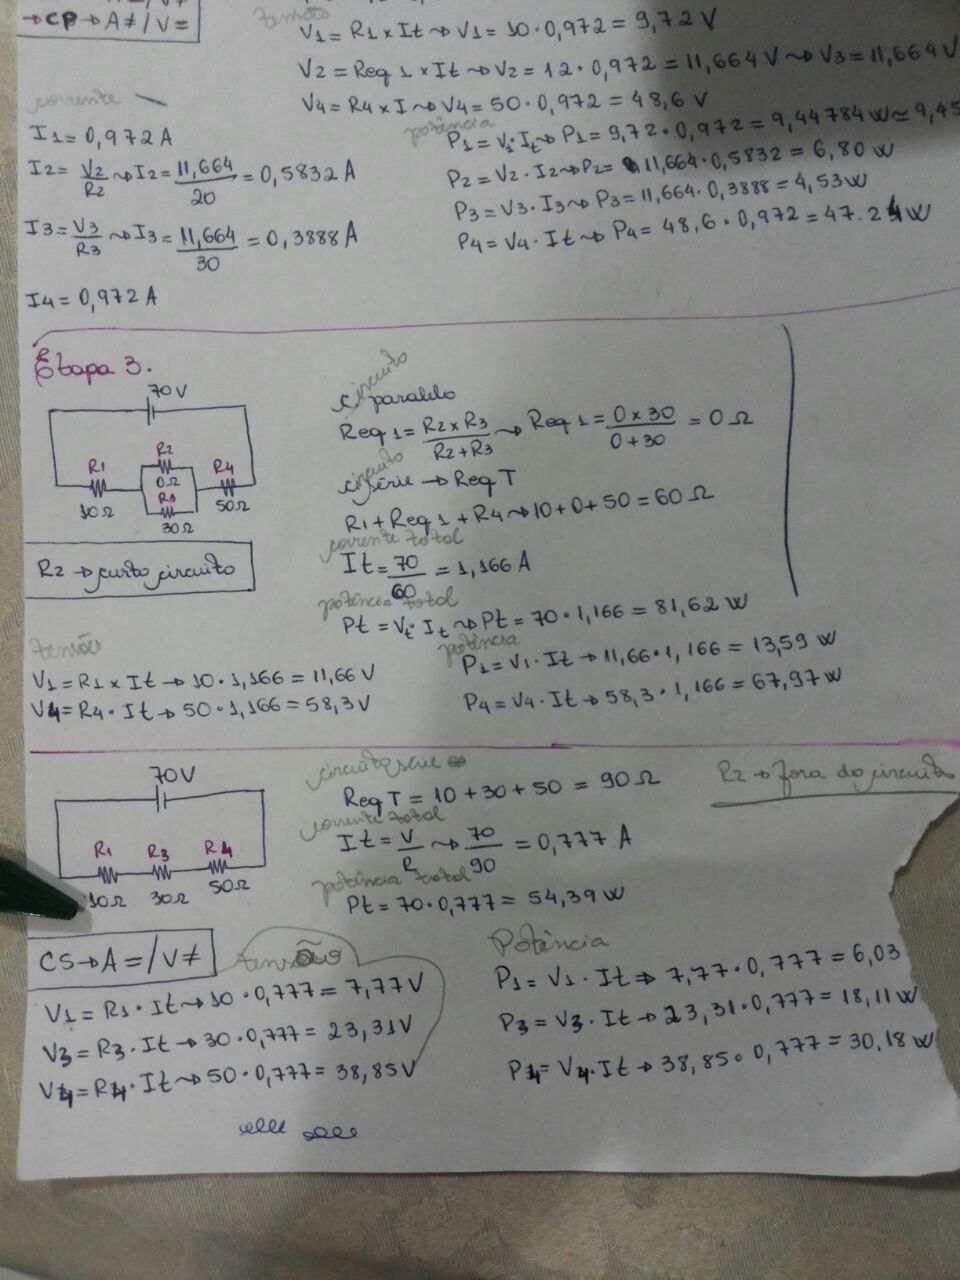 →CP→A≠/V=
tensão
V1=R1xIt→V1=10·0,972=9,72V
V2=Req1xIt→V2=12·0,972=11,664V→V3=11,664V
V4=R4xI→V4=50·0,972=48,6V
corrente
I1=0,972A
I2=V2/R2→I2=11,664/20=0,5832A
I3=V3/R3→I3=11,664/30=0,3888A
I4=0,972A
potência
P1=V1·It→P1=9,72·0,972=9,44784W≃9,45
P2=V2·I2→P2=11,664·0,5832=6,80W
P3=V3·I3→P3=11,664·0,3888=4,53W
P4=V4·It→P4=48,6·0,972=47.24W
Etapa 3.
70V
R1
10Ω
R2
0Ω
R3
30Ω
R4
50Ω
R2→curto circuito
circuito
paralelo
Req1=R2xR3/R2+R3→Req1=0x30/0+30=0Ω
circuito
série→ReqT
R1+Req1+R4→10+0+50=60Ω
corrente total
It=70/60=1,166A
potência total
Pt=Vt·It→Pt=70·1,166=81,62W
tensões
V1=R1xIt→10·1,166=11,66V
V4=R4·It→50·1,166=58,3V
potência
P1=V1·It→11,66·1,166=13,59W
P4=V4·It→58,3·1,166=67,97W
70V
R1
10Ω
R3
30Ω
R4
50Ω
circuito série
ReqT=10+30+50=90Ω
R2→fora do circuito
corrente total
It=V/R→70/90=0,777A
potência total
Pt=70·0,777=54,39W
CS→A=/V≠
tensão
V1=R1·It→10·0,777=7,77V
V3=R3·It→30·0,777=23,31V
V4=R4·It→50·0,777=38,85V
Potência
P1=V1·It→7,77·0,777=6,03
P3=V3·It→23,31·0,777=18,11W
P4=V4·It→38,85·0,777=30,18W